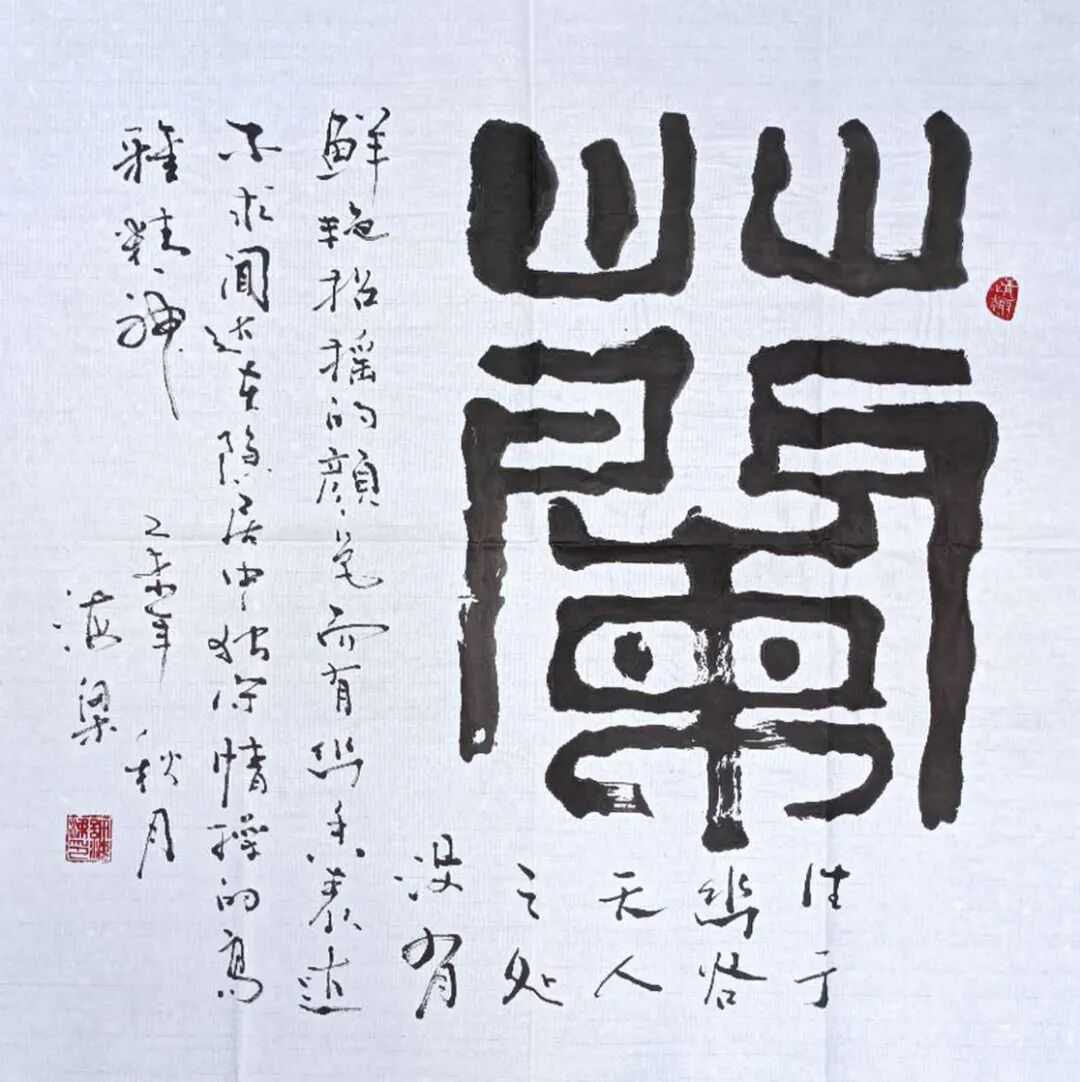 蘭
住于
幽谷
无人
之处
没有
鮮艳招摇的顔色而有幽香表达
不求闻达在隐居中独守情操的高
雅精神
乙未年秋月
海梁
情趣